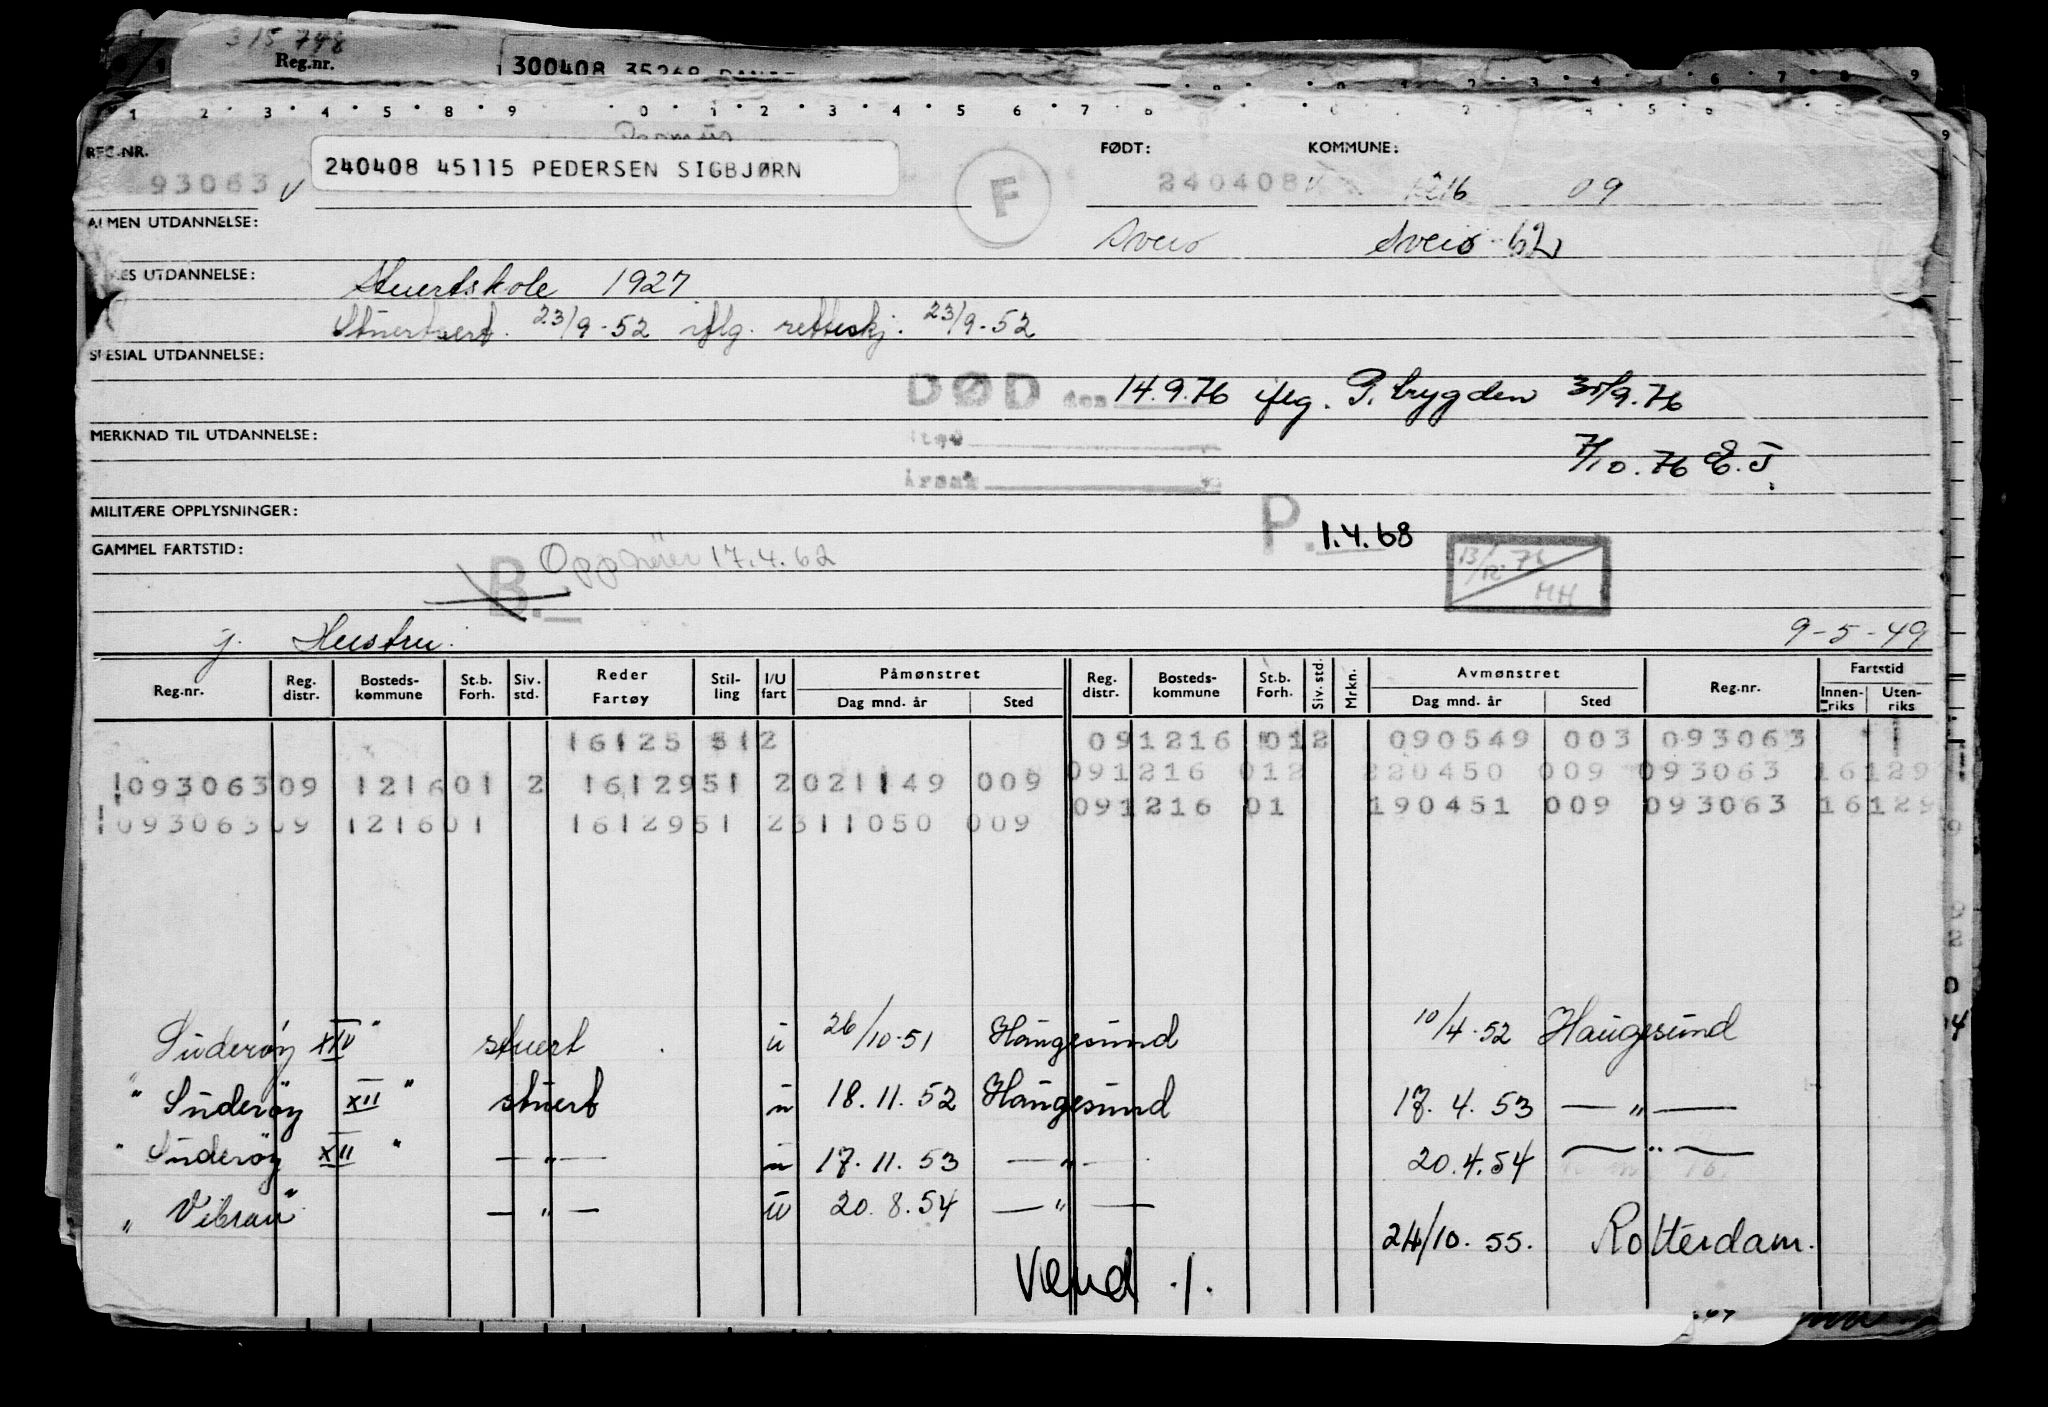 315 798
Reg.nr.
300408 35268
1 2 3 4 5 8 9 0 1 2 3 4 5 6 7 8
REG.NR. FØDT: KOMMUNE:
93063 V 240408 45115 PEDERSEN SIGBJØRN F 240408 1216 09
ALMEN UTDANNELSE: Sveio Sveio 62
UTDANNELSE: Stuertskole 1927
Stuertsert. 23/9-52 iflg. retteskj. 23/9-52
SPESIAL UTDANNELSE:
DØD den 14.9.76 iflg. P. trygden 30/9.76
MERKNAD TIL UTDANNELSE:
7/10.76 E.J.
Årsak
MILITÆRE OPPLYSNINGER:
P. 1.4.68
GAMMEL FARTSTID:
B. Opphører 17.4.62 13/12.76 HH
j. Hustru. 9-5-49
Reg.nr. Reg. distr. Bosteds-kommune St.b. Forh. Siv. std. Reder Fartøy Stil-ling I/U fart Påmønstret Dag mnd. år Sted Reg. distr. Bosteds-kommune St.b. Forh. Siv. std. Mrkn. Avmønstret Dag mnd. år Sted Reg.nr. Fartstid Innen-riks Uten-riks
16125 512 091216 012 090549 003 093063
109306309 121601 2 1612951 2021149 009 091216 012 220450 009 093063 16129
109306309 121601 1612951 2311050 009 091216 01 190451 009 093063 16129
Suderøy XIV" stuert u 26/10-51 Haugesund 10/4-52 Haugesund
" Suderøy XII " stuert u 18.11.52 Haugesund 17.4.53 — " —
" Suderøy XII " — " — u 17.11.53 — " — 20.4.54 — " —
" Vibran" — " — u 20.8.54 — " — 24/10.55. Rotterdam.
Vend ./.